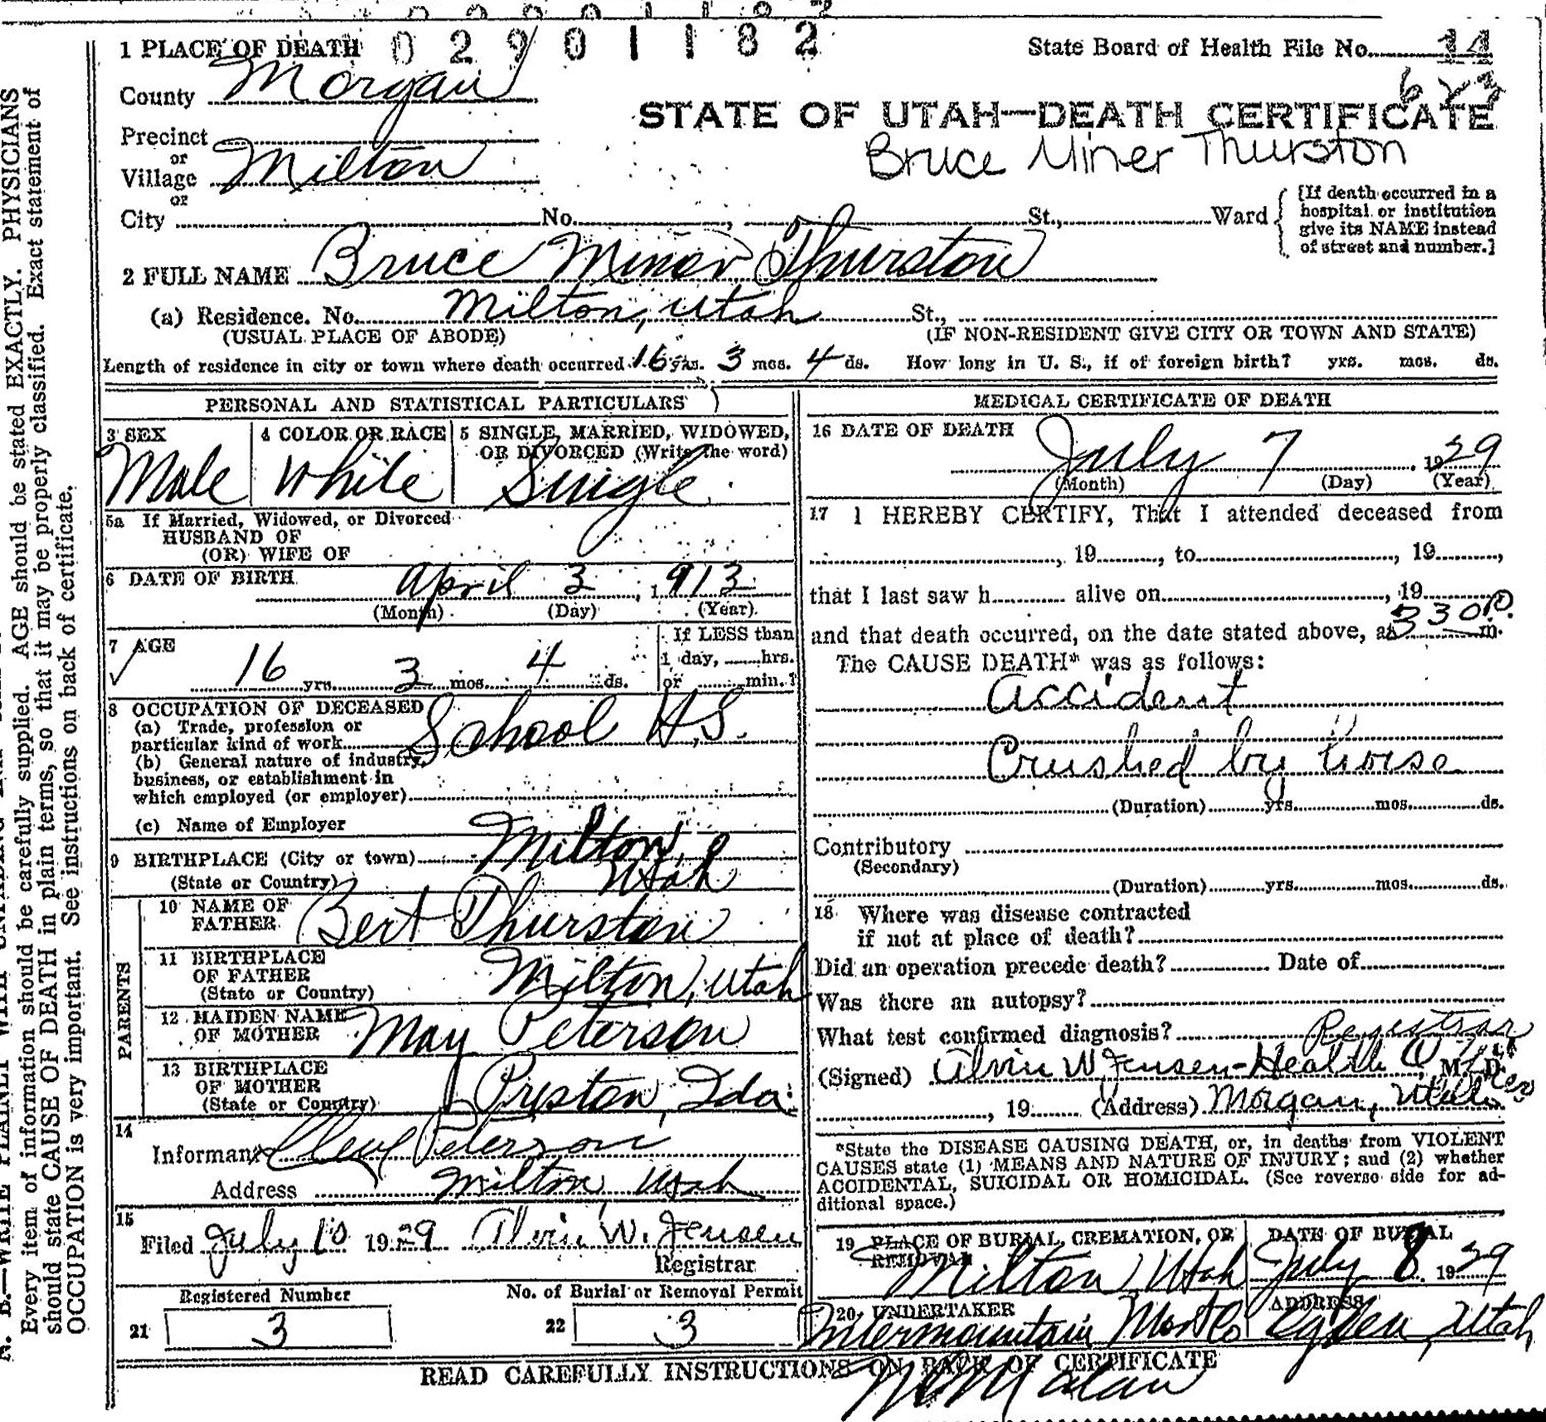 02901182
1 PLACE OF DEATH
State Board of Health File No. 14
623
County Morgan
STATE OF UTAH—DEATH CERTIFICATE
Precinct
or
Bruce Miner Thurston
Village Milton
or
City No. , St., Ward
[If death occurred in a
hospital or institution
give its NAME instead
of street and number.]
2 FULL NAME Bruce Minor Thurston
(a) Residence. No. Milton, Utah St.,
(USUAL PLACE OF ABODE) (IF NON-RESIDENT GIVE CITY OR TOWN AND STATE)
Length of residence in city or town where death occurred 16 yrs. 3 mos. 4 ds. How long in U. S., if of foreign birth? yrs. mos. ds.
PERSONAL AND STATISTICAL PARTICULARS
3 SEX
Male
4 COLOR OR RACE
White
5 SINGLE, MARRIED, WIDOWED,
OR DIVORCED (Write the word)
Single
5a If Married, Widowed, or Divorced
HUSBAND OF
(OR) WIFE OF
6 DATE OF BIRTH April 3, 1913
(Month) (Day) (Year)
7 AGE
16 yrs. 3 mos. 4 ds.
If LESS than
1 day, hrs.
or min.?
8 OCCUPATION OF DECEASED
(a) Trade, profession or
particular kind of work School H.S.
(b) General nature of industry,
business, or establishment in
which employed (or employer)
(c) Name of Employer
9 BIRTHPLACE (City or town) Milton,
(State or Country) Utah
PARENTS
10 NAME OF
FATHER Bert Thurston
11 BIRTHPLACE
OF FATHER
(State or Country) Milton, Utah
12 MAIDEN NAME
OF MOTHER May Peterson
13 BIRTHPLACE
OF MOTHER
(State or Country) Preston, Ida.
14
Informant Peterson
Address Milton, Utah
15
Filed July 10 1929 Alvin W. Jensen
Registrar
Registered Number
21 3
No. of Burial or Removal Permit
22 3
MEDICAL CERTIFICATE OF DEATH
16 DATE OF DEATH
July 7, 1929
(Month) (Day) (Year)
17 I HEREBY CERTIFY, That I attended deceased from
, 19 , to , 19 ,
that I last saw h alive on , 19
and that death occurred, on the date stated above, at 330 P. m.
The CAUSE DEATH* was as follows:
Accident
Crushed by horse
(Duration) yrs. mos. ds.
Contributory
(Secondary)
(Duration) yrs. mos. ds.
18 Where was disease contracted
if not at place of death?
Did an operation precede death? Date of
Was there an autopsy?
What test confirmed diagnosis?
Registrar
(Signed) Alvin W. Jensen-Health Officer M. D.
, 19 (Address) Morgan, Utah
*State the DISEASE CAUSING DEATH, or, in deaths from VIOLENT
CAUSES state (1) MEANS AND NATURE OF INJURY; and (2) whether
ACCIDENTAL, SUICIDAL OR HOMICIDAL. (See reverse side for ad-
ditional space.)
19 PLACE OF BURIAL, CREMATION, OR
REMOVAL
Milton, Utah
DATE OF BURIAL
July 8 1929
20 UNDERTAKER
Intermountain Mort Co
ADDRESS
Ogden, Utah
READ CAREFULLY INSTRUCTIONS ON BACK OF CERTIFICATE
Every item of information should be carefully supplied. AGE should be stated EXACTLY. PHYSICIANS
should state CAUSE OF DEATH in plain terms, so that it may be properly classified. Exact statement of
OCCUPATION is very important. See instructions on back of certificate.